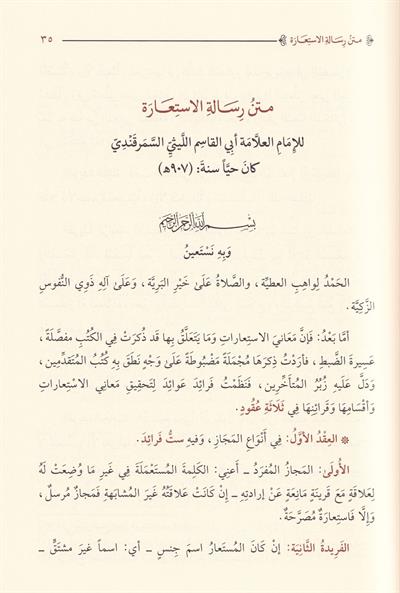 متنُ رِسَالةِ الاستِعارَة ٣٥
متنُ رِسَالةِ الاستِعَارَة
للإمَامِ العلَّامَة أبي القاسِم اللَّيثيِّ السَّمَرقَنْدِيّ
كانَ حيَّاً سنةَ: (٩٠٧هـ)
بِسْمِ اللهِ الرَّحْمَنِ الرَّحِيمِ
وَبِهِ نَسْتَعينُ
الحَمْدُ لِواهِبِ العطيَّة، والصَّلاةُ عَلَىٰ خَيْرِ البَرِيَّة، وَعَلَىٰ آلِهِ ذَوِي النُّفوسِ
الزَّكِيَّة.
أمَّا بَعْدُ: فَإنَّ مَعَانيَ الاستِعاراتِ وَمَا يَتَعلَّقُ بِها قَد ذُكِرَتْ فِي الكُتُبِ مفصَّلَة،
عَسِيرَةَ الضَّبطِ، فأرَدْتُ ذِكرَهَا مُجْمَلَةً مَضْبُوطَةً عَلَىٰ وَجْهٍ نَطَقَ بِهِ كُتُبُ المُتَقدِّمين،
وَدَلَّ عَلَيهِ زُبُرُ المُتأخِّرِين، فنَظَمْتُ فَرائِدَ عَوائِدَ لِتَحقِيقِ مَعانِي الاسْتِعاراتِ
وَأقْسَامِهَا وَقَرائِنِهَا فِي ثَلَاثَةِ عُقُودٍ.
* العِقْدُ الأوَّلُ: فِي أنْوَاعِ المَجَازِ، وَفيهِ ستُّ فَرائِدَ.
الأُولَىٰ: المَجازُ المُفرَدُ ــ أَعنِي: الكَلِمةَ المُستَعمَلَةَ فِي غَيرِ مَا وُضِعَتْ لَهُ
لِعلاقةٍ مَعَ قَرينَةٍ مَانِعَةٍ عَنْ إرادتِهِ ــ إنْ كَانَتْ عَلاقتُهُ غَيرَ المُشابَهةِ فمَجازٌ مُرسلٌ،
وَإلَّا فَاستِعارَةٌ مُصَرَّحَةٌ.
الفَرِيدةُ الثَّانِيَة: إنْ كَانَ المُستَعارُ اسمَ جِنسٍ ــ أي: اسماً غيرَ مشتقٍّ ــ